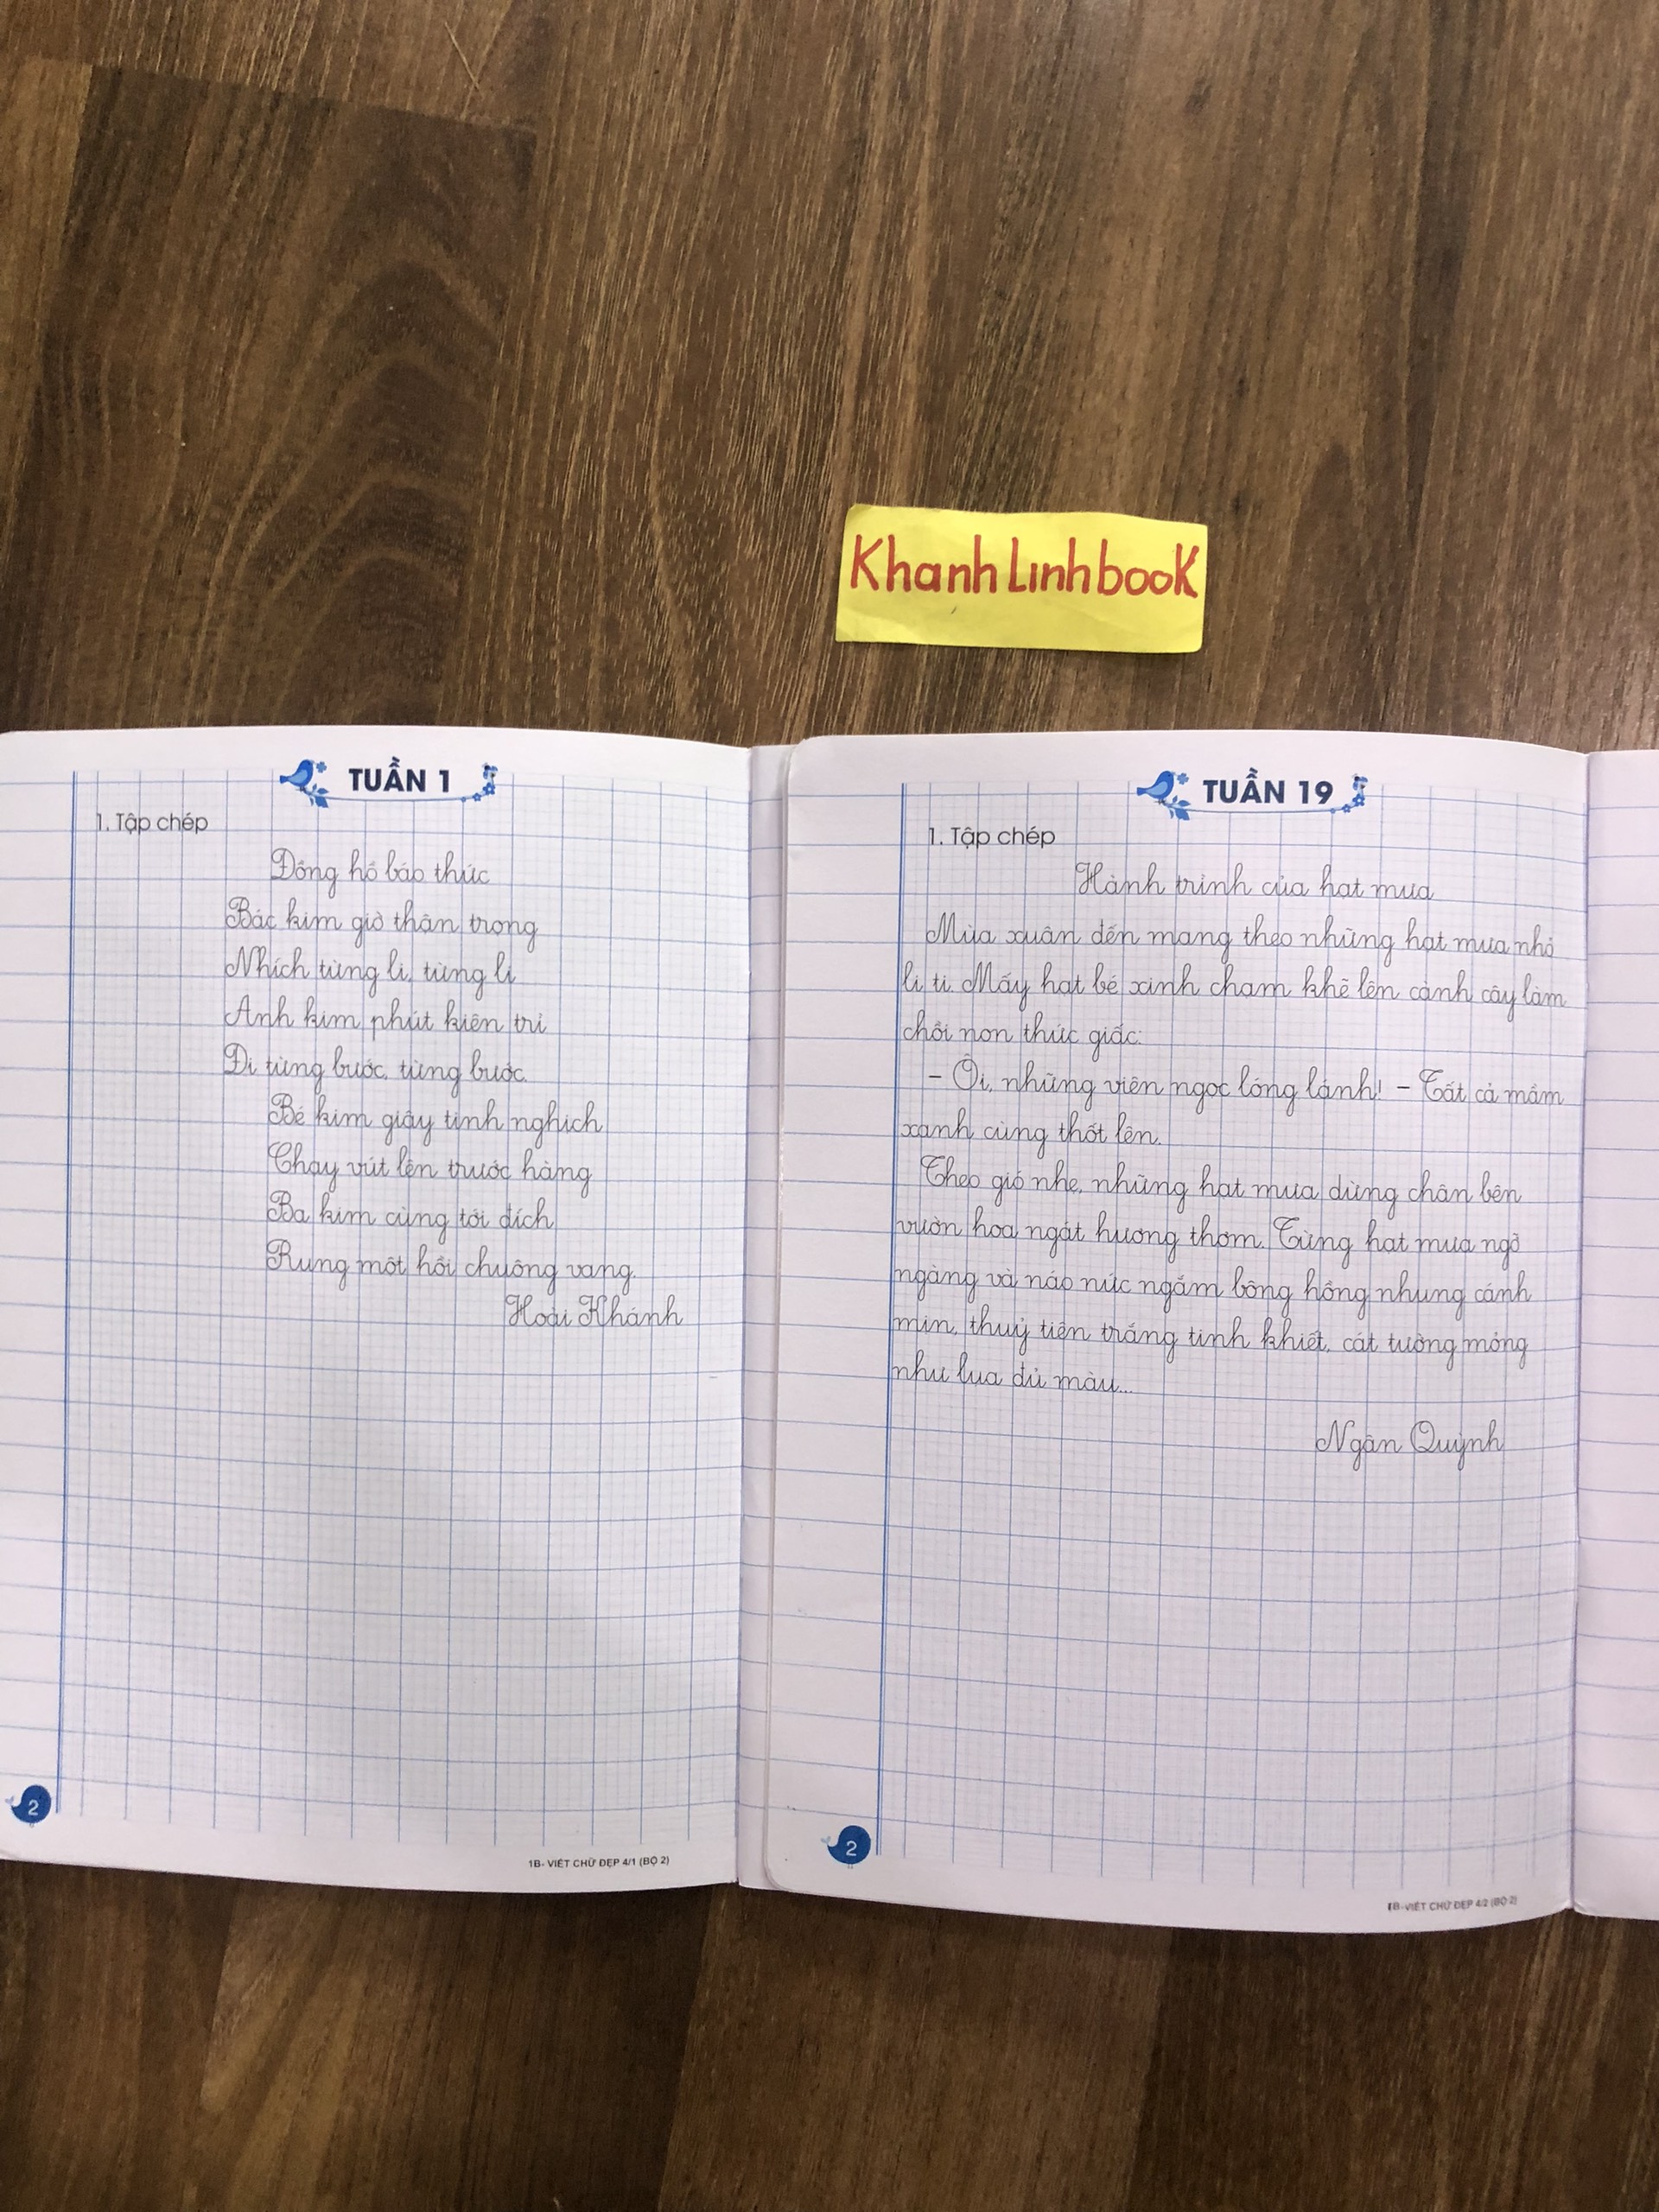 Khanh Linh book
TUẦN 1
1. Tập chép
Đồng hồ báo thức
Bác kim giờ thận trọng
Nhích từng li, từng li
Anh kim phút kiên trì
Đi từng bước, từng bước.
Bé kim giây tinh nghịch
Chạy vút lên trước hàng
Ba kim cùng tới đích
Rung một hồi chuông vang.
Hoài Khánh
2
1B- VIẾT CHỮ ĐẸP 4/1 (BỘ 2)
TUẦN 19
1. Tập chép
Hành trình của hạt mưa
Mùa xuân đến mang theo những hạt mưa nhỏ
li ti. Mấy hạt bé xinh chạm khẽ lên cành cây làm
chồi non thức giấc:
– Ôi, những viên ngọc lóng lánh! – Tất cả mầm
xanh cùng thốt lên.
Theo gió nhẹ, những hạt mưa dừng chân bên
vườn hoa ngát hương thơm. Từng hạt mưa ngỡ
ngàng và náo nức ngắm bông hồng nhung cánh
mịn, thuỷ tiên trắng tinh khiết, cát tường mỏng
như lụa đủ màu...
Ngân Quỳnh
2
1B-VIẾT CHỮ ĐẸP 4/2 (BỘ 2)